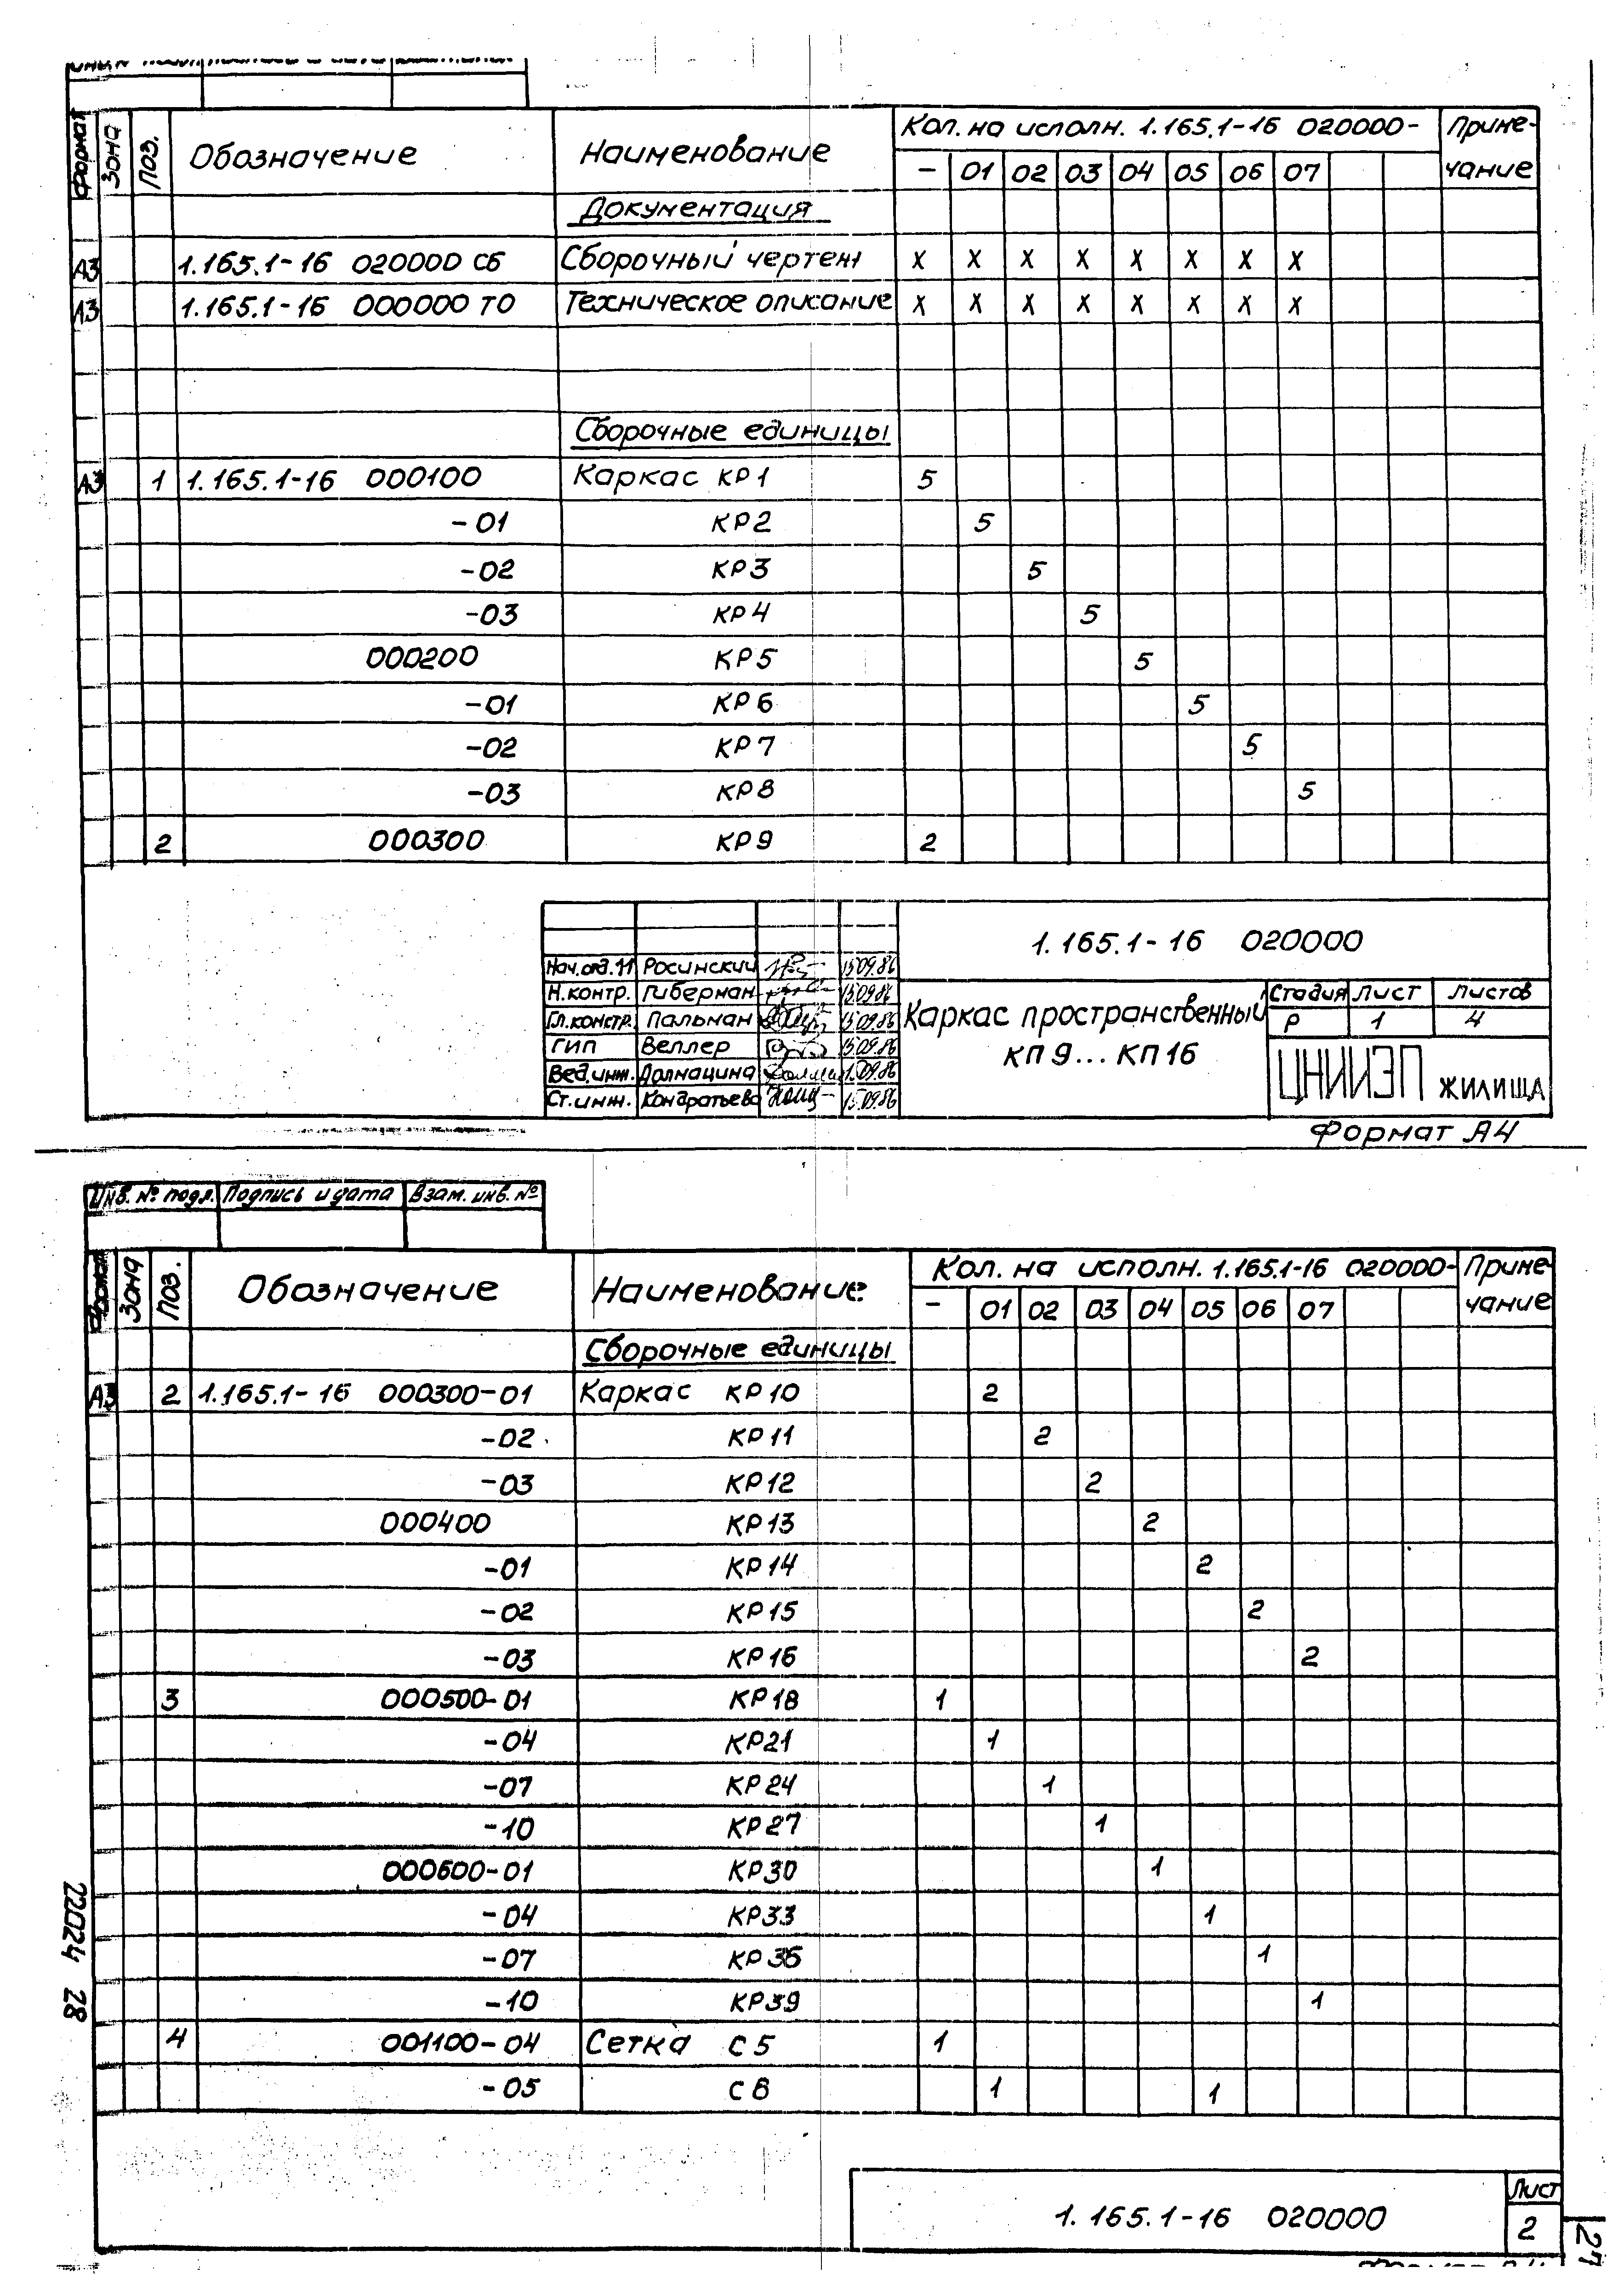 Формат Зона Поз. Обозначение Наименование Кол. на исполн. 1.165.1-16 020000- Приме-
- 01 02 03 04 05 06 07 чание
Документация
А3 1.165.1-16 020000 СБ Сборочный чертеж X X X X X X X X
А3 1.165.1-16 000000 ТО Техническое описание X X X X X X X X
Сборочные единицы
А3 1 1.165.1-16 000100 Каркас КР1 5
-01 КР2 5
-02 КР3 5
-03 КР4 5
000200 КР5 5
-01 КР6 5
-02 КР7 5
-03 КР8 5
2 000300 КР9 2
1.165.1-16 020000
Нач.отд.11 Росинский 15.09.86
Н.контр. Гиберман 15.09.86
Гл.констр. Пальман 15.09.86
ГИП Веллер 15.09.86
Вед.инж. Долмацина 15.09.86
Ст.инж. Кондратьева 15.09.86
Каркас пространственный
КП9...КП16
Стадия Лист Листов
Р 1 4
ЦНИИЭП ЖИЛИЩА
Формат А4
Инв. № подл. Подпись и дата Взам. инв. №
Формат Зона Поз. Обозначение Наименование Кол. на исполн. 1.165.1-16 020000- Приме-
- 01 02 03 04 05 06 07 чание
Сборочные единицы
А3 2 1.165.1-16 000300-01 Каркас КР10 2
-02 КР11 2
-03 КР12 2
000400 КР13 2
-01 КР14 2
-02 КР15 2
-03 КР16 2
3 000500-01 КР18 1
-04 КР21 1
-07 КР24 1
-10 КР27 1
000600-01 КР30 1
-04 КР33 1
-07 КР36 1
-10 КР39 1
4 001100-04 Сетка С5 1
-05 С6 1 1
22024 28
1.165.1-16 020000
Лист
2
27